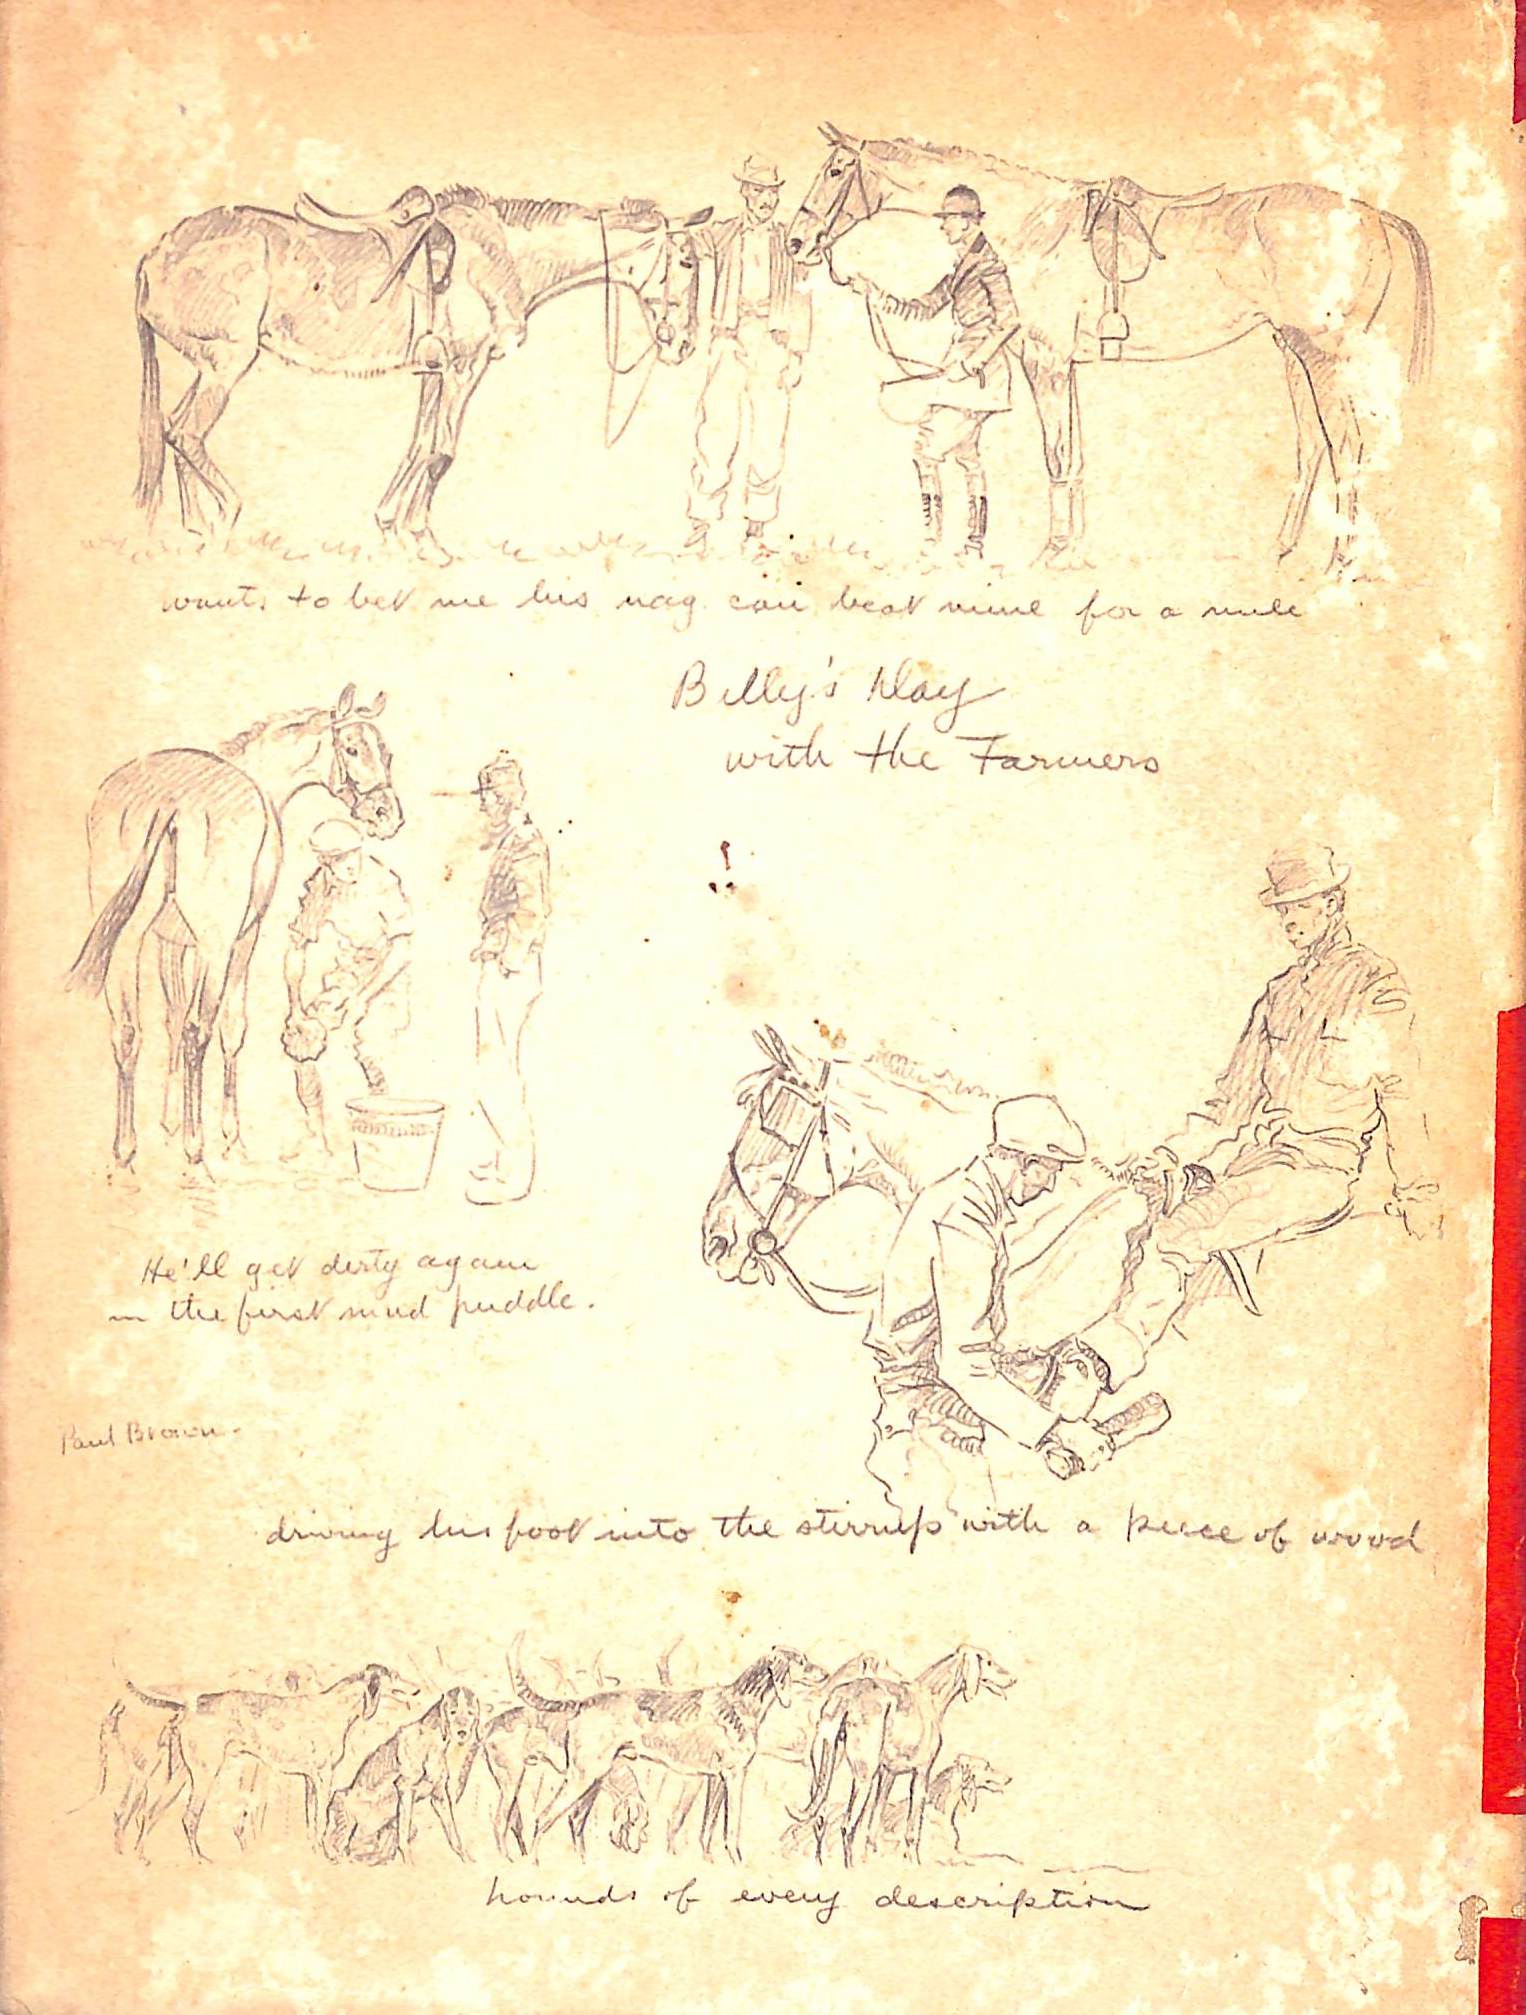 wants to bet me his nag can beat mine for a mile
Billy's Day
with the Farmers
He'll get dirty again
in the first mud puddle.
Paul Brown.
driving his foot into the stirrup with a piece of wood
hounds of every description